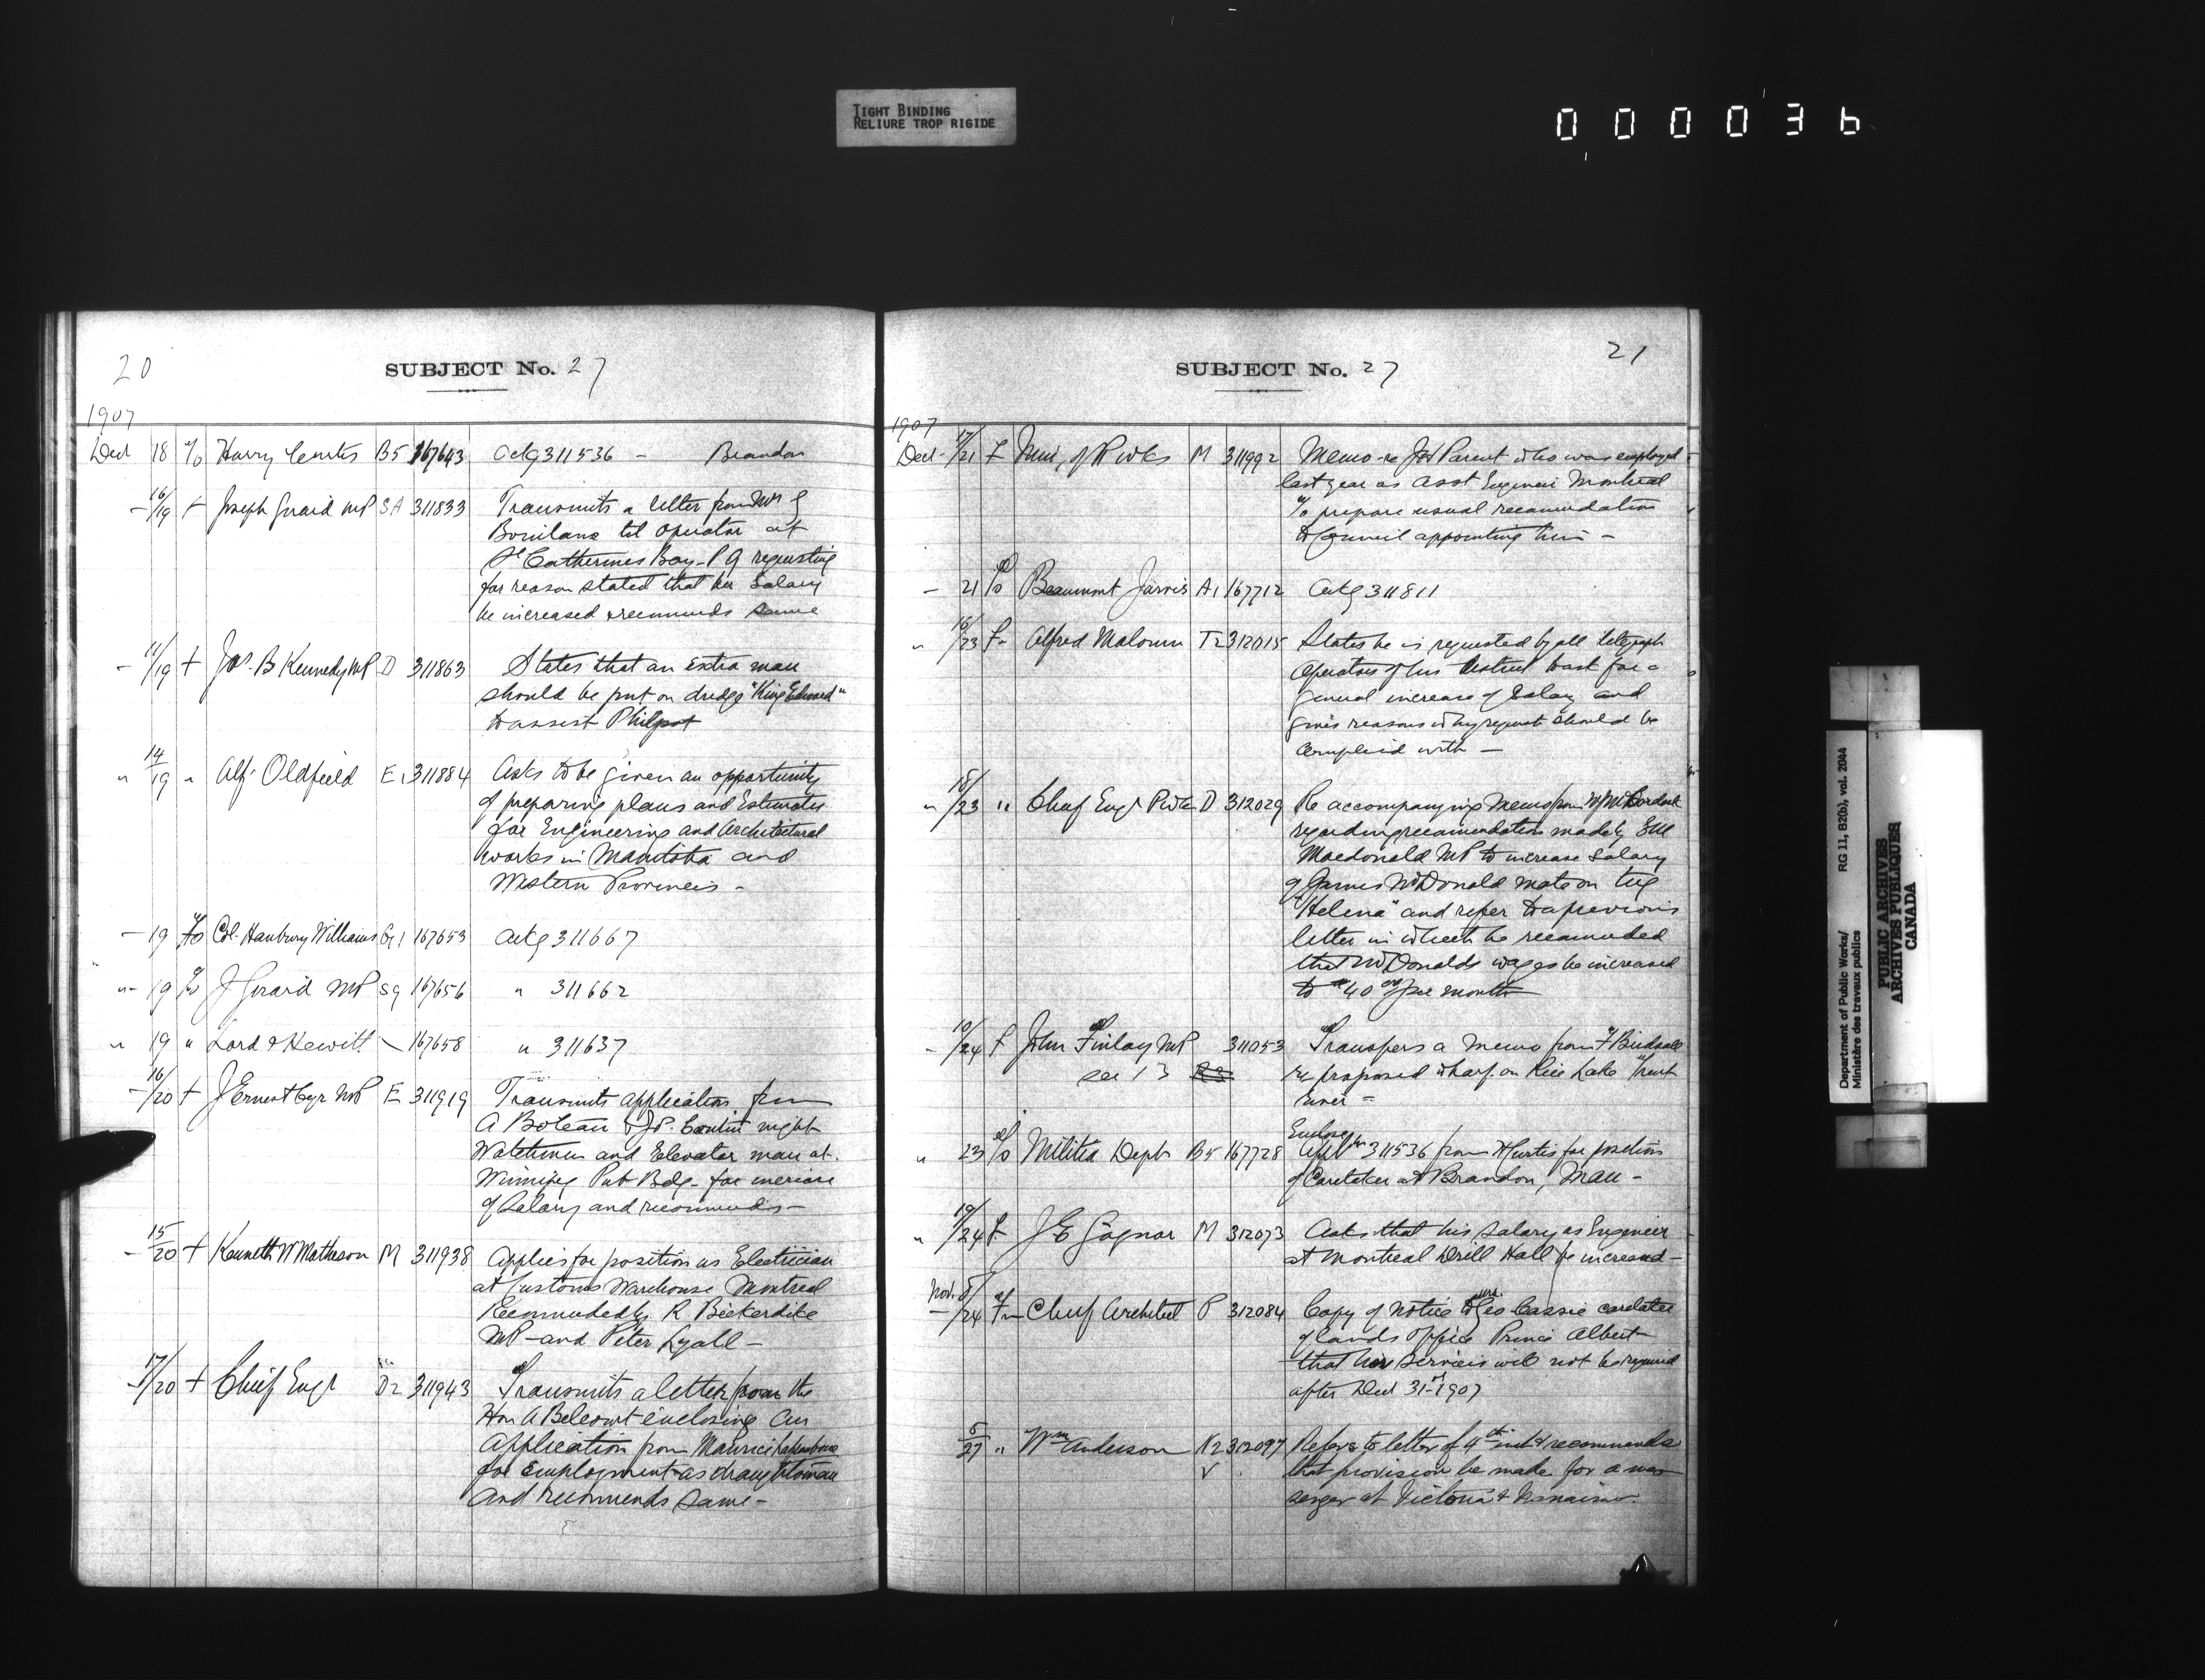 TIGHT BINDING
RELIURE TROP RIGIDE
000036
20
SUBJECT No. 27
1907
Dec 18 T/o Harry Curtis B5 167643 Ackg 311536 - Brandon
- 16/19 F Joseph Girard MP SA 311833 Transmits a letter from Mrs G
tel operator at
St Catherines Bay P Q requesting
for reason stated that her Salary
be increased & recommends same
- 11/19 F Jas. B Kennedy MP D 311863 States that an extra man
should be put on dredge "King Edward"
to assist Philpot
" 14/19 " Alf. Oldfield E1 311884 Asks to be given an opportunity
of preparing plans and Estimates
for Engineering and Architectural
works in Manitoba and
Western Provinces -
- 19 T/o Col. Hanbury Williams G1 167653 Ackg 311667
" 19 T/o J Girard MP SA 167656 " 311662
" 19 " Lord & Hewitt 167658 " 311637
- 16/20 F J Ernest Cyr MP E 311919 Transmits application from
A Boteau & Jos. Boutin night
Watchman and Elevator man at
Winnipeg Pub Bdg. for increase
of Salary and recommends -
- 15/20 F Kenneth W Matheson M 311938 Applies for position as Electrician
at Customs Warehouse Montreal
Recommended by R Bickerdike
MP - and Peter Lyall -
- 17/20 F Chief Engr D2 311943 Transmits a letter from the
Hon A Belcourt enclosing an
Application from Maurice
for Employment as draughtsman
and recommends same -
21
SUBJECT No. 27
1907
Dec - 17/21 F Min, of P Wks M 311992 Memo re Jos Parent who was employed
last year as asst Engineer Montreal
T/o prepare usual recommendation
to Council appointing him -
- 21 T/o Beaumont Jarvis A1 167712 Ackg 311811
" 16/23 F Alfred Malouin T2 312015 States he is requested by all telegraph
Operators of his district to ask for a
general increase of Salary and
gives reasons why request should be
complied with -
" 18/23 " Chief Engr P Wks D 312029 Re accompanying Memo from
regarding recommendation made by E M
Macdonald MP to increase Salary
of James McDonald mate on tug
"Helena" and refer to a previous
letter in which he recommended
that McDonalds wages be increased
to $40 00 per month
- 10/24 F John Finlay MP 311053 Transfers a memo from F Birdsall
see 13
re proposed wharf on Rice Lake Trent
River -
" 23 T/o Militia Dept B5 167728 Encloses
Appl'n 311536 from H Curtis for position
of Caretaker at Brandon, Man -
" 19/24 F J E Gagnon M 312073 Asks that his Salary as Engineer
at Montreal Drill Hall be increased -
Nov. 5
- /24 Fm Chief Architect P 312084 Copy of Notice to Mrs. Geo Cassie caretaker
of Lands Office Prince Albert
that her Services will not be required
after Dec 31st 1907
5/27 " Wm Anderson K2 312097 Refers to letter of 4th inst & recommends
V
that provision be made for a mes-
senger at Victoria & Nanaimo.
Department of Public Works/
Ministère des travaux publics
RG 11, B2(b), vol. 2044
PUBLIC ARCHIVES
ARCHIVES PUBLIQUES
CANADA